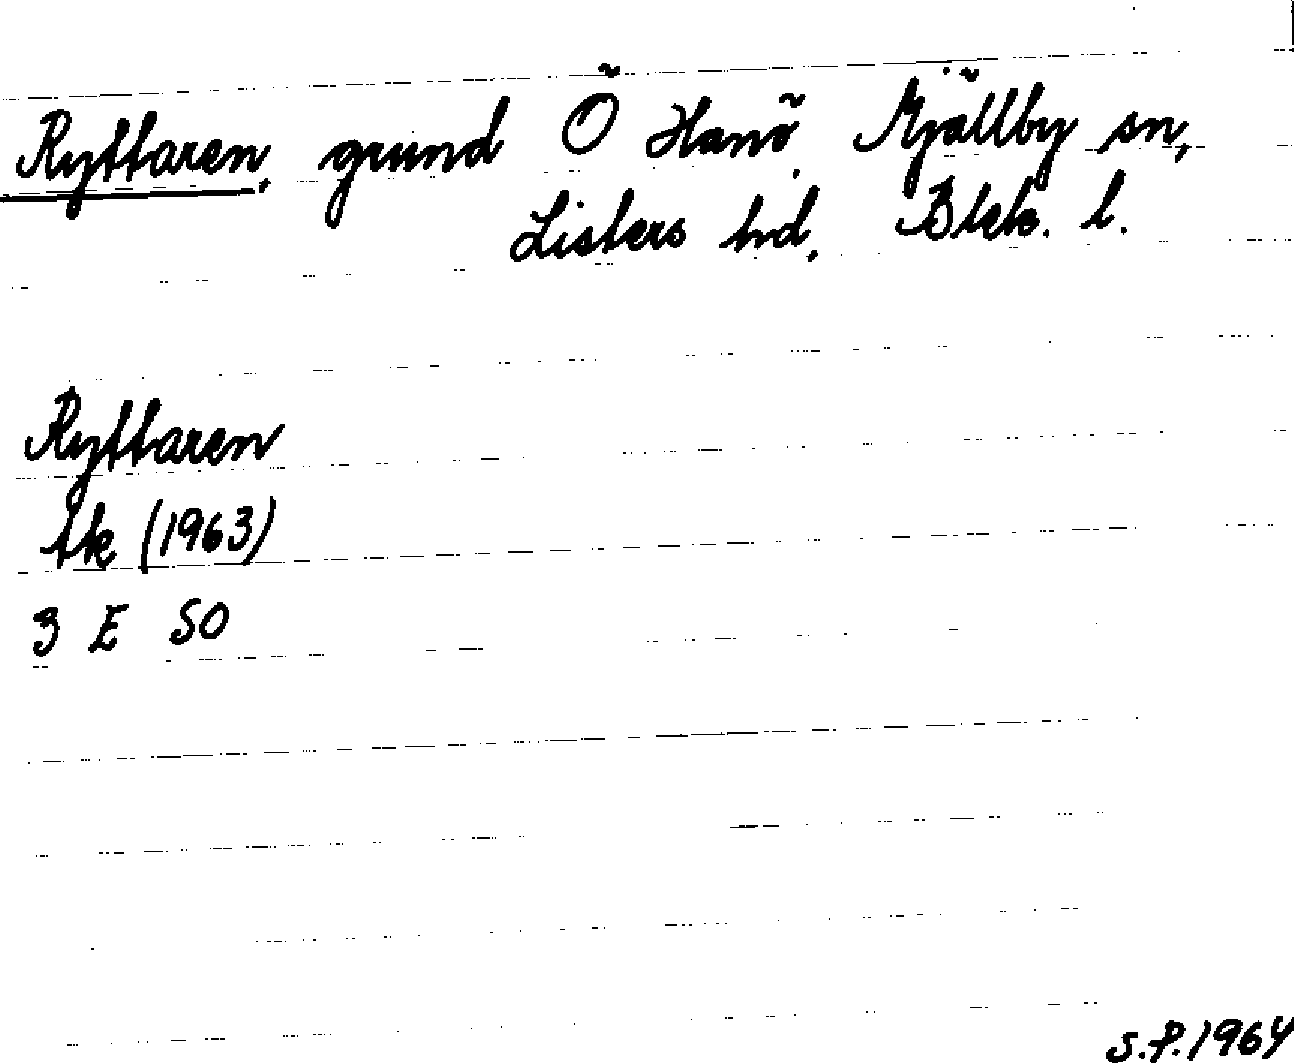 Ryttaren, grund Ö Hanö Mjällby sn,
Listers hd, Blek. l.
Ryttaren
tk (1963)
3 E SO
S.P. 1964